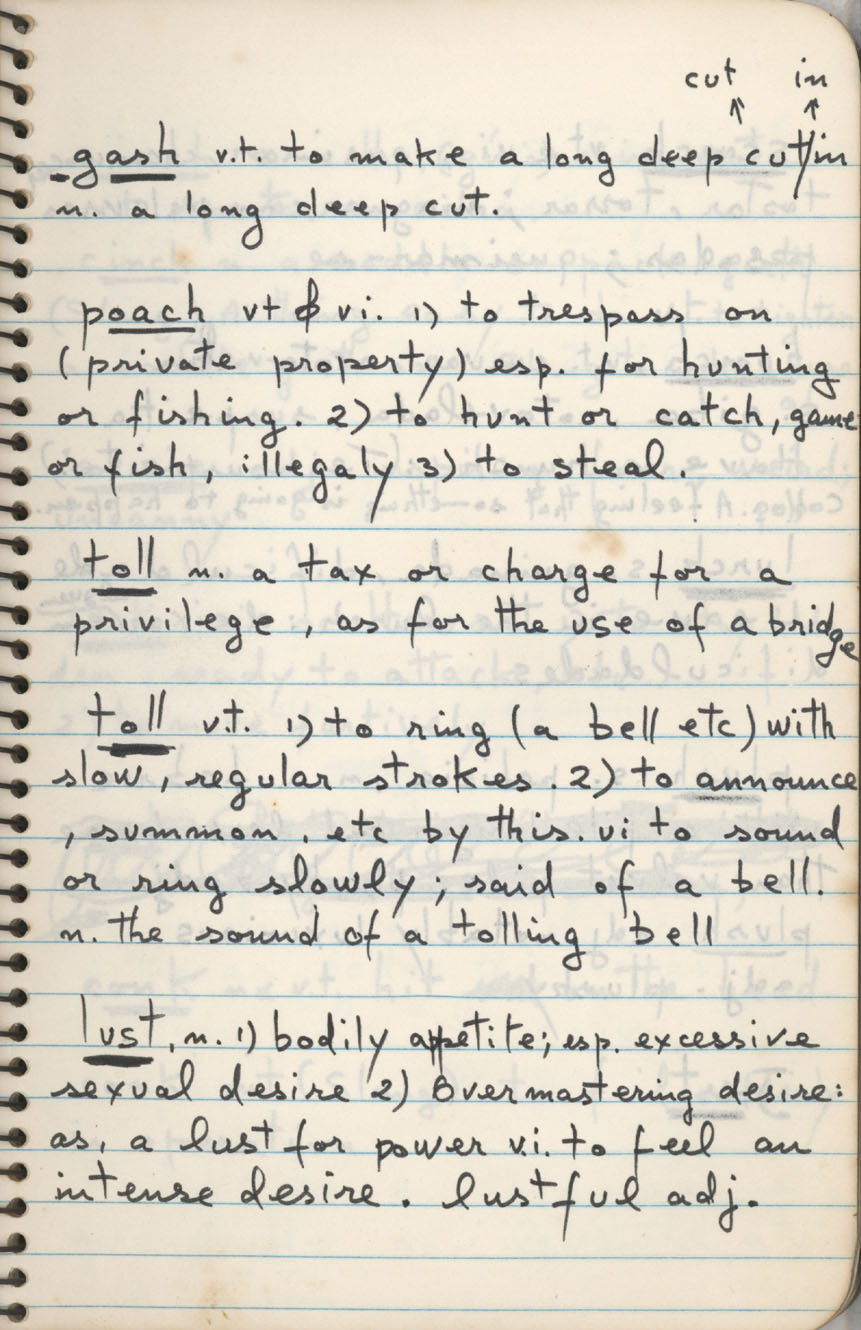 cut in
gash v.t. to make a long deep cut/in
n. a long deep cut.
poach vt & vi. 1) to trespass on
(private property) esp. for hunting
or fishing. 2) to hunt or catch, game
or fish, illegaly 3) to steal.
toll n. a tax or charge for a
privilege, as for the use of a bridge
toll v.t. 1) to ring (a bell etc) with
slow, regular strokes. 2) to announce
, summon, etc by this. vi to sound
or ring slowly; said of a bell.
n. the sound of a tolling bell
lust, n. 1) bodily appetite; esp. excessive
sexual desire 2) Overmastering desire:
as, a lust for power v.i. to feel an
intense desire. lustful adj.